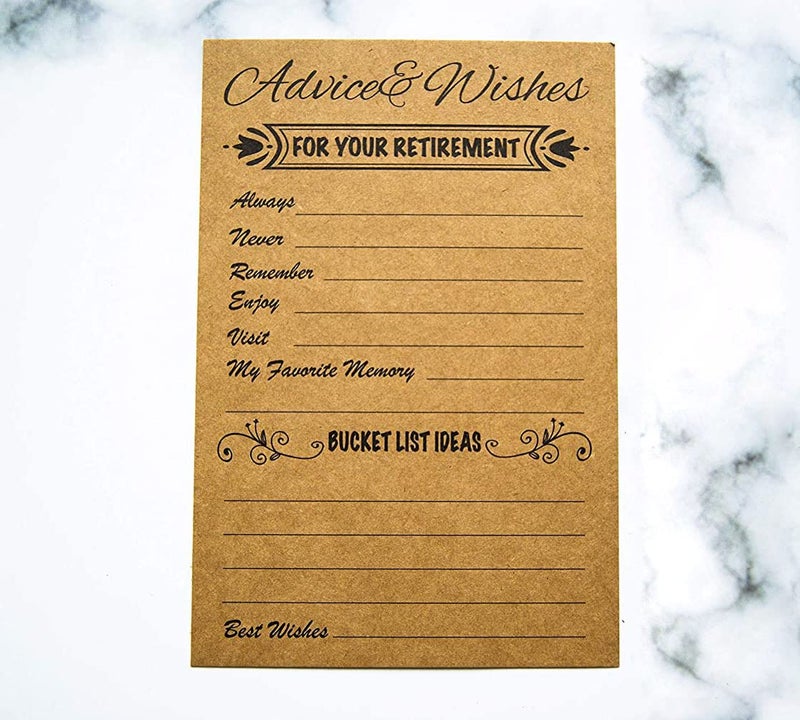 Advice & Wishes
FOR YOUR RETIREMENT
Always
Never
Remember
Enjoy
Visit
My Favorite Memory
BUCKET LIST IDEAS
Best Wishes